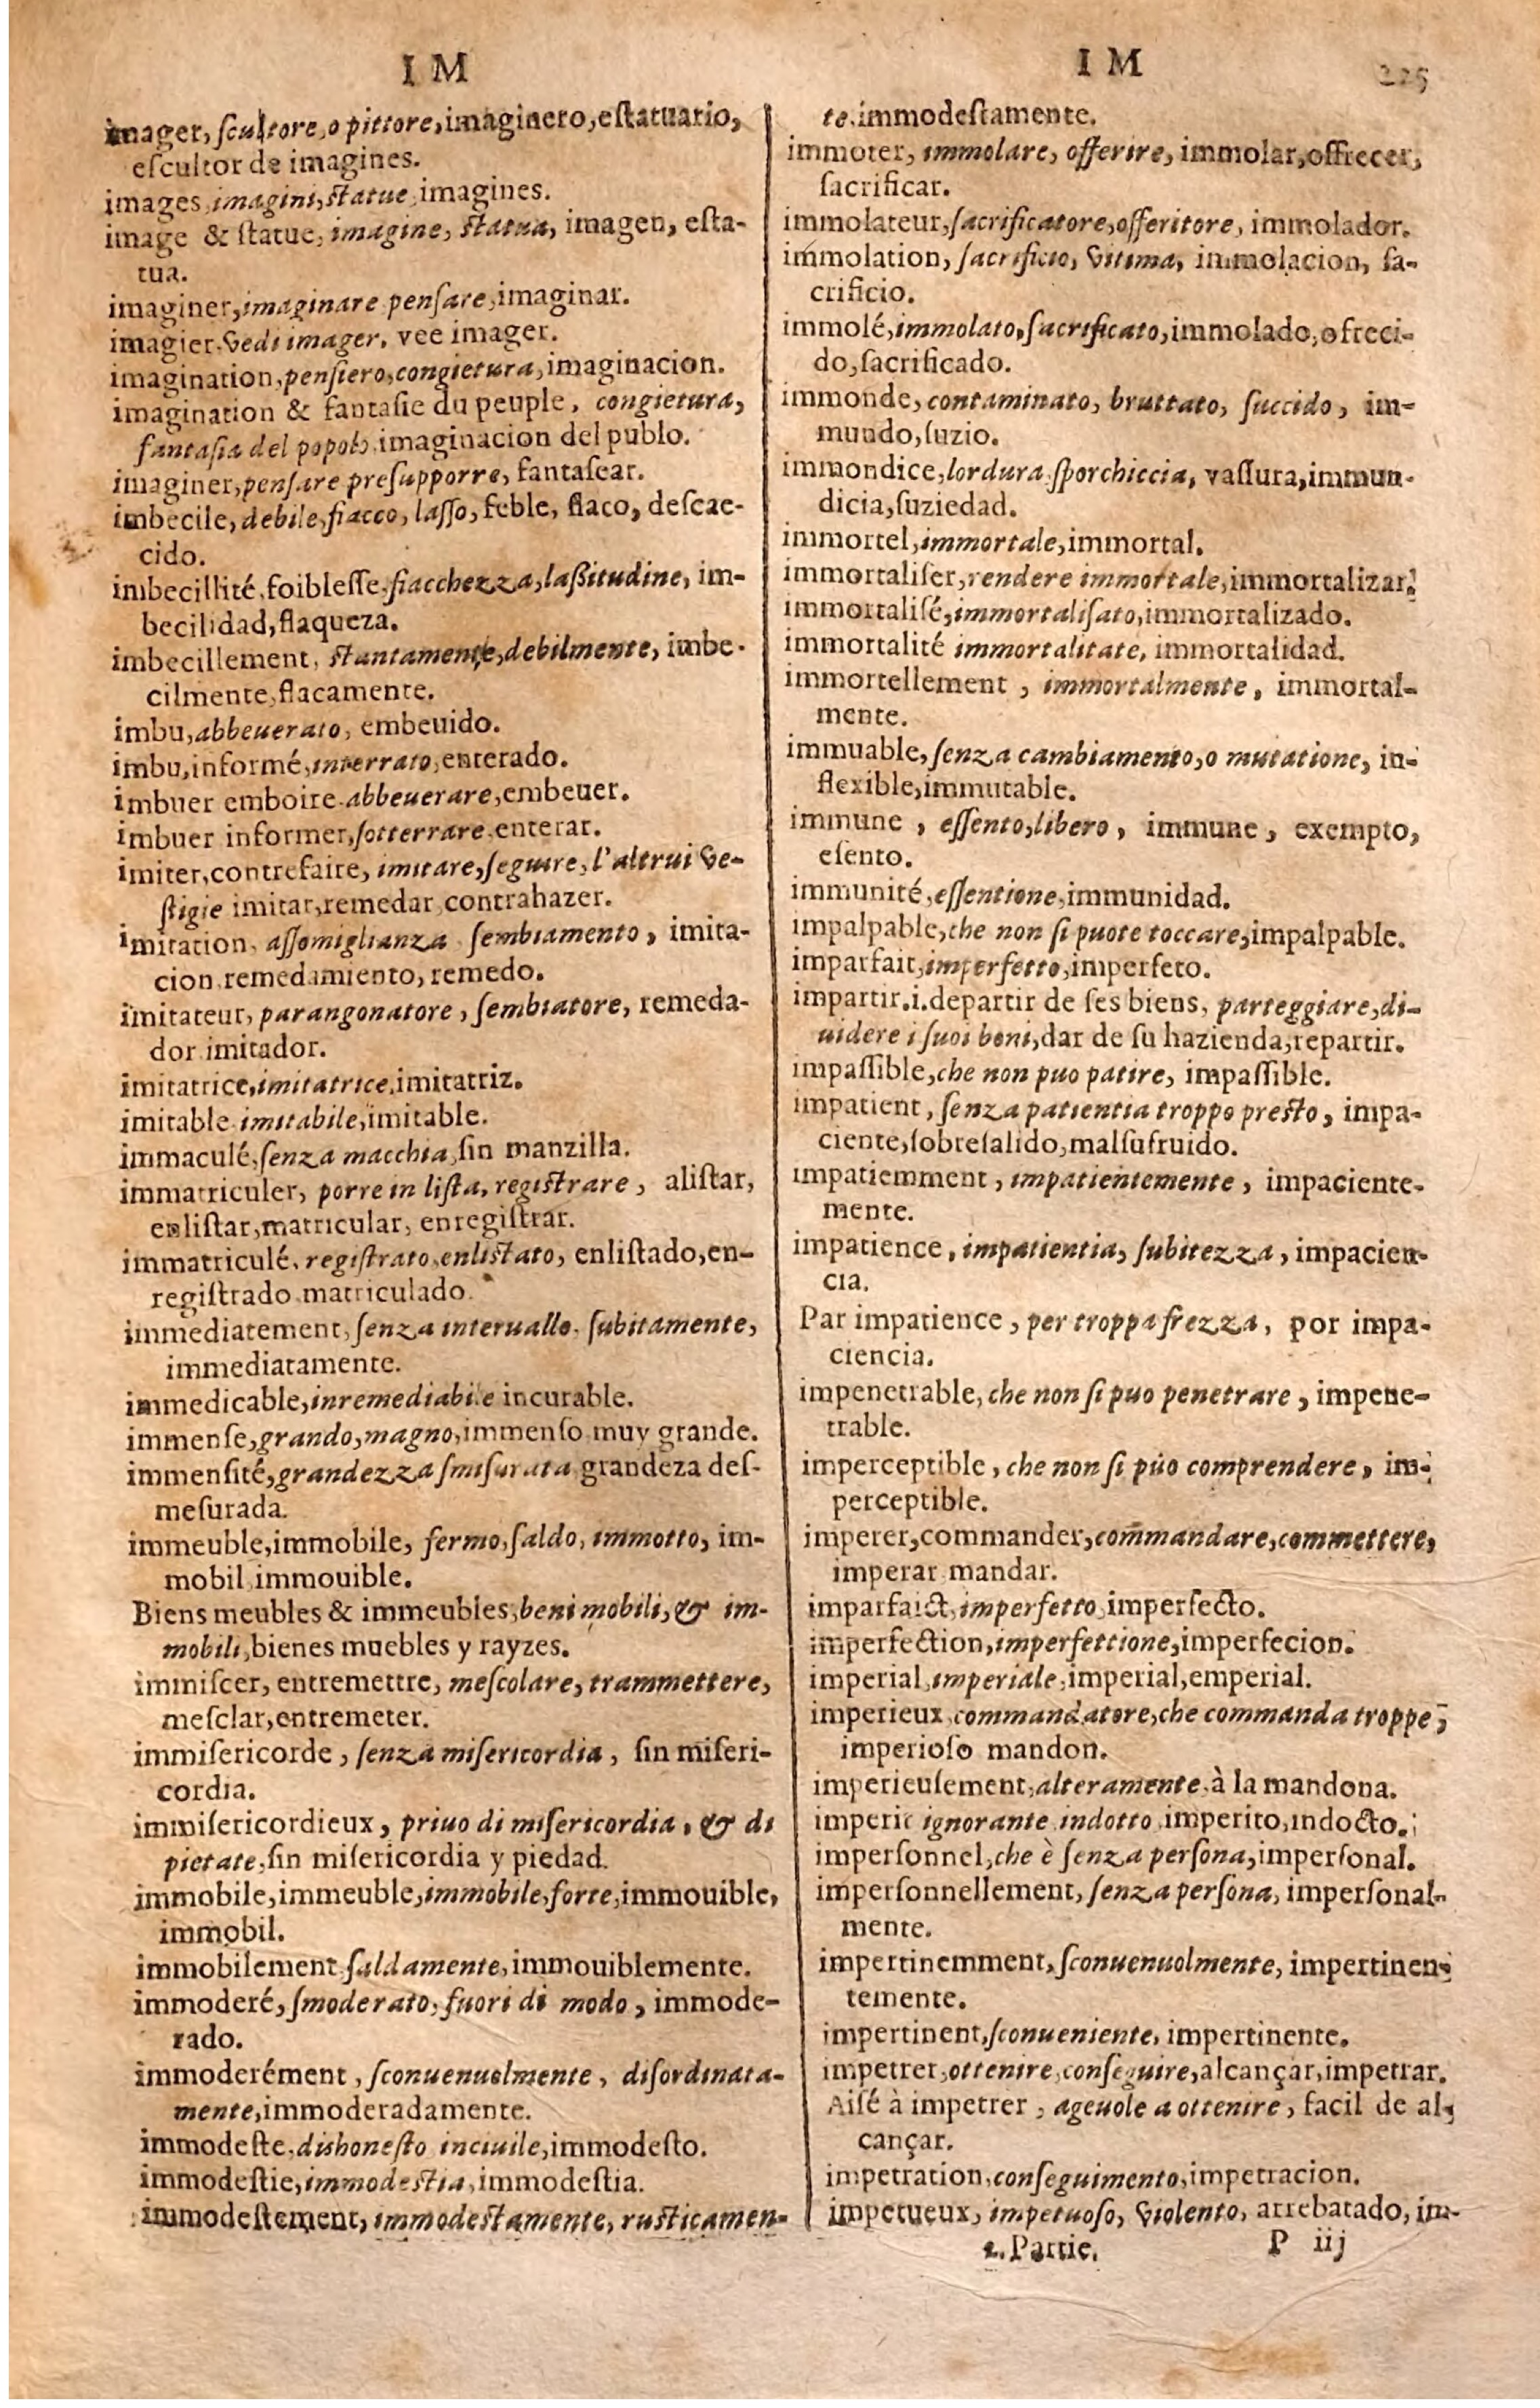 I M
imager, ſcultore, o pittore, imaginero, eſtatuario,
eſcultor de imagines.
images, imagini, ſtatue, imagines.
image & ſtatue, imagine, ſtatua, imagen, eſta-
tua.
imaginer, imaginare penſare, imaginar.
imagier. vedi imager. vee imager.
imagination, penſiero, congietura, imaginacion.
imagination & fantaſie du peuple, congietura,
fantaſia del popolo, imaginacion del publo.
imaginer, penſare preſupporre, fantaſear.
imbecile, debile, fiacco, laſſo, feble, flaco, deſcae-
cido.
imbecillité, foibleſſe, fiacchezza, laßitudine, im-
becilidad, flaqueza.
imbecillement, ſtantamente, debilmente, imbe-
cilmente, flacamente.
imbu, abbeuerato, embeuido.
imbu, informé, interrato, enterado.
imbuer emboire. abbeuerare, embeuer.
imbuer informer, ſotterrare, enterar.
imiter, contrefaire, imitare, ſeguire, l'altrui ve-
ſtigie imitar, remedar, contrahazer.
imitation, aſſomiglianza ſembiamento, imita-
cion, remedamiento, remedo.
imitateur, parangonatore, ſembiatore, remeda-
dor imitador.
imitatrice, imitatrice, imitatriz.
imitable imitabile, imitable.
immaculé, ſenza macchia, ſin manzilla.
immatriculer, porre in liſta, regiſtrare, aliſtar,
enliſtar, matricular, enregiſtrar.
immatriculé, regiſtrato, enliſtato, enliſtado, en-
regiſtrado matriculado.
immediatement, ſenza interuallo, ſubitamente,
immediatamente.
immedicable, inremediabile incurable.
immenſe, grando, magno, immenſo muy grande.
immenſité, grandezza ſmiſurata grandeza deſ-
meſurada.
immeuble, immobile, fermo, ſaldo, immotto, im-
mobil, immouible.
Biens meubles & immeubles, beni mobili, & im-
mobili, bienes muebles y rayzes.
immiſcer, entremettre, meſcolare, trammettere,
meſclar, entremeter.
immiſericorde, ſenza miſericordia, ſin miſeri-
cordia.
immiſericordieux, priuo di miſericordia, & di
pietate, ſin miſericordia y piedad.
immobile, immeuble, immobile, forte, immouible,
immobil.
immobilement ſaldamente, immouiblemente.
immoderé, ſmoderato, fuori di modo, immode-
rado.
immoderément, ſconuenuolmente, diſordinata-
mente, immoderadamente.
immodeſte, dishoneſto inciuile, immodeſto.
immodeſtie, immodeſtia, immodeſtia.
immodeſtement, immodeſtamente, ruſticamen-
I M 225
te, immodeſtamente.
immoter, immolare, offerire, immolar, offrecer,
ſacrificar.
immolateur, ſacrificatore, offeritore, immolador.
immolation, ſacrificio, vitima, immolacion, ſa-
crificio.
immolé, immolato, ſacrificato, immolado, ofreci-
do, ſacrificado.
immonde, contaminato, bruttato, ſuccido, im-
mundo, ſuzio.
immondice, lordura ſporchiccia, vaſſura, immun-
dicia, ſuziedad.
immortel, immortale, immortal.
immortaliſer, rendere immortale, immortalizar.
immortaliſé, immortaliſato, immortalizado.
immortalité immortalitate, immortalidad.
immortellement, immortalmente, immortal-
mente.
immuable, ſenza cambiamento, o mutatione, in-
flexible, immutable.
immune, eſſento, libero, immune, exempto,
eſento.
immunité, eſſentione, immunidad.
impalpable, che non ſi puote toccare, impalpable.
imparfait, imperfetto, imperfeto.
impartir. i. departir de ſes biens, parteggiare, di-
uidere i ſuoi beni, dar de ſu hazienda, repartir.
impaſſible, che non puo patire, impaſſible.
impatient, ſenza patientia troppo preſto, impa-
ciente, ſobreſalido, malſufruido.
impatiemment, impatientemente, impaciente-
mente.
impatience, impatientia, ſubitezza, impacien-
cia.
Par impatience, per troppa frezza, por impa-
ciencia.
impenetrable, che non ſi puo penetrare, impene-
trable.
imperceptible, che non ſi pùo comprendere, im-
perceptible.
imperer, commander, commandare, commettere,
imperar mandar.
imparfaict, imperfetto, imperfecto.
imperfection, imperfettione, imperfecion.
imperial, imperiale, imperial, emperial.
imperieux, commandatore, che commanda troppo,
imperioſo mandon.
imperieuſement, alteramente, à la mandona.
imperit ignorante indotto, imperito, indocto.
imperſonnel, che è ſenza perſona, imperſonal.
imperſonnellement, ſenza perſona, imperſonal-
mente.
impertinemment, ſconuenuolmente, impertinen-
temente.
impertinent, ſconueniente, impertinente.
impetrer, ottenire, conſeguire, alcançar, impetrar.
Aiſé à impetrer, ageuole a ottenire, facil de al-
cançar.
impetration, conſeguimento, impetracion.
impetueux, impetuoſo, violento, arrebatado, im-
2. Partie. P iij